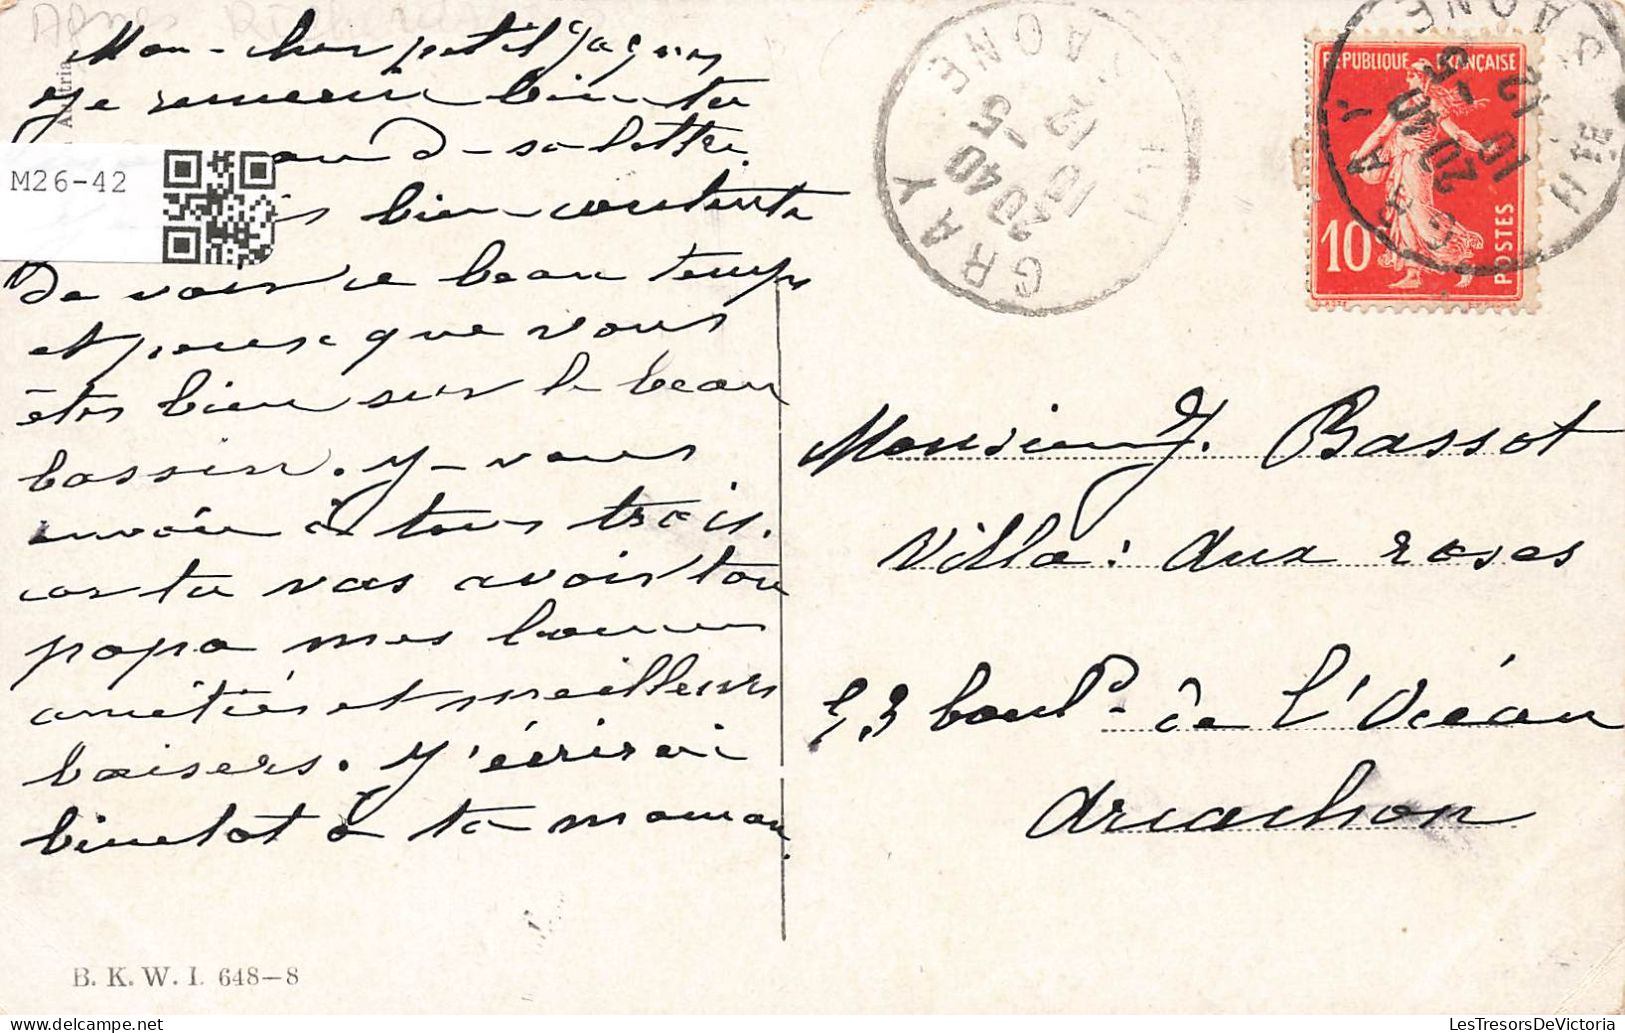 Mon cher petit Jacques
Je remercie bien ta
maman de sa lettre.
suis bien contente
de voir ce beau temps
et pense que vous
êtes bien sur le beau
bassin. Je vous
envoie à tous trois,
car tu vas avoir ton
papa mes bonnes
amitiés et meilleurs
baisers. J'écrirai
bientot à ta maman.
Austria
M26-42
B. K. W. I. 648-8
GRAY
20 40
10 -5
12
Hte SAONE
GRAY
20 40
10 -5
12
Hte SAONE
REPUBLIQUE FRANÇAISE
10
POSTES
Monsieur J. Bassot
Villa: Aux roses
53 boulᵈ de l'Océan
Arcachon
LesTresorsDeVictoria